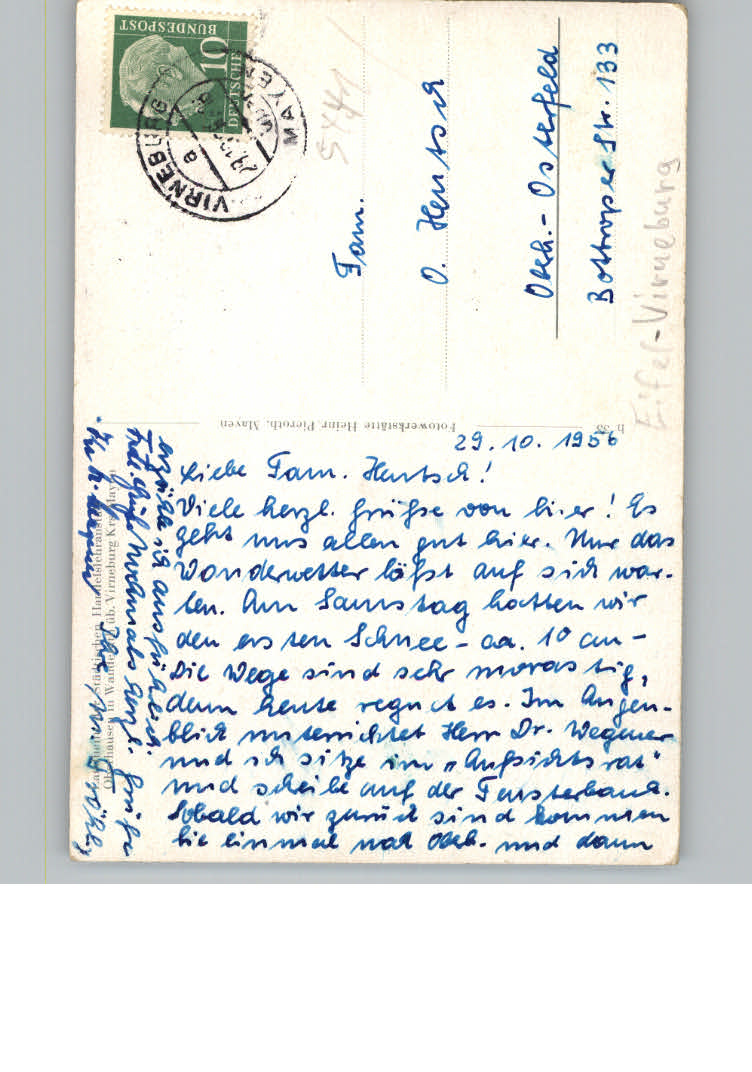 29.10.1956
Liebe Fam. Hentsch!
Viele herzl. Grüße von hier! Es
geht uns allen gut hier. Nur das
Wanderwetter läßt auf sich war-
ten. Am Samstag hatten wir
den ersten Schnee - ca. 10 cm -
Die Wege sind sehr morastig,
denn heute regnet es. Im Augen-
blick unterrichtet Herr Dr. Wegener
und ich sitze im „Aufsichtsrat“
und schreibe auf der Fensterbank.
Sobald wir zurück sind kommen
Sie einmal nach Oberh. und dann
erzähle ich ausführlich.
Frdl. Grüße
Nochmals herzl. Grüße
Ihre
Fam.
O. Hentsch
Oberh.-Osterfeld
Bottroper Str. 133
Eifel-Virneburg
DEUTSCHE
BUNDESPOST
10
VIRNEBURG
MAYEN
a
h 33
Fotowerkstätte Heinr. Pieroth, Mayen
Städtischen Handelslehranstalten
Oberhausen in Wanderath üb. Virneburg Krs. Mayen